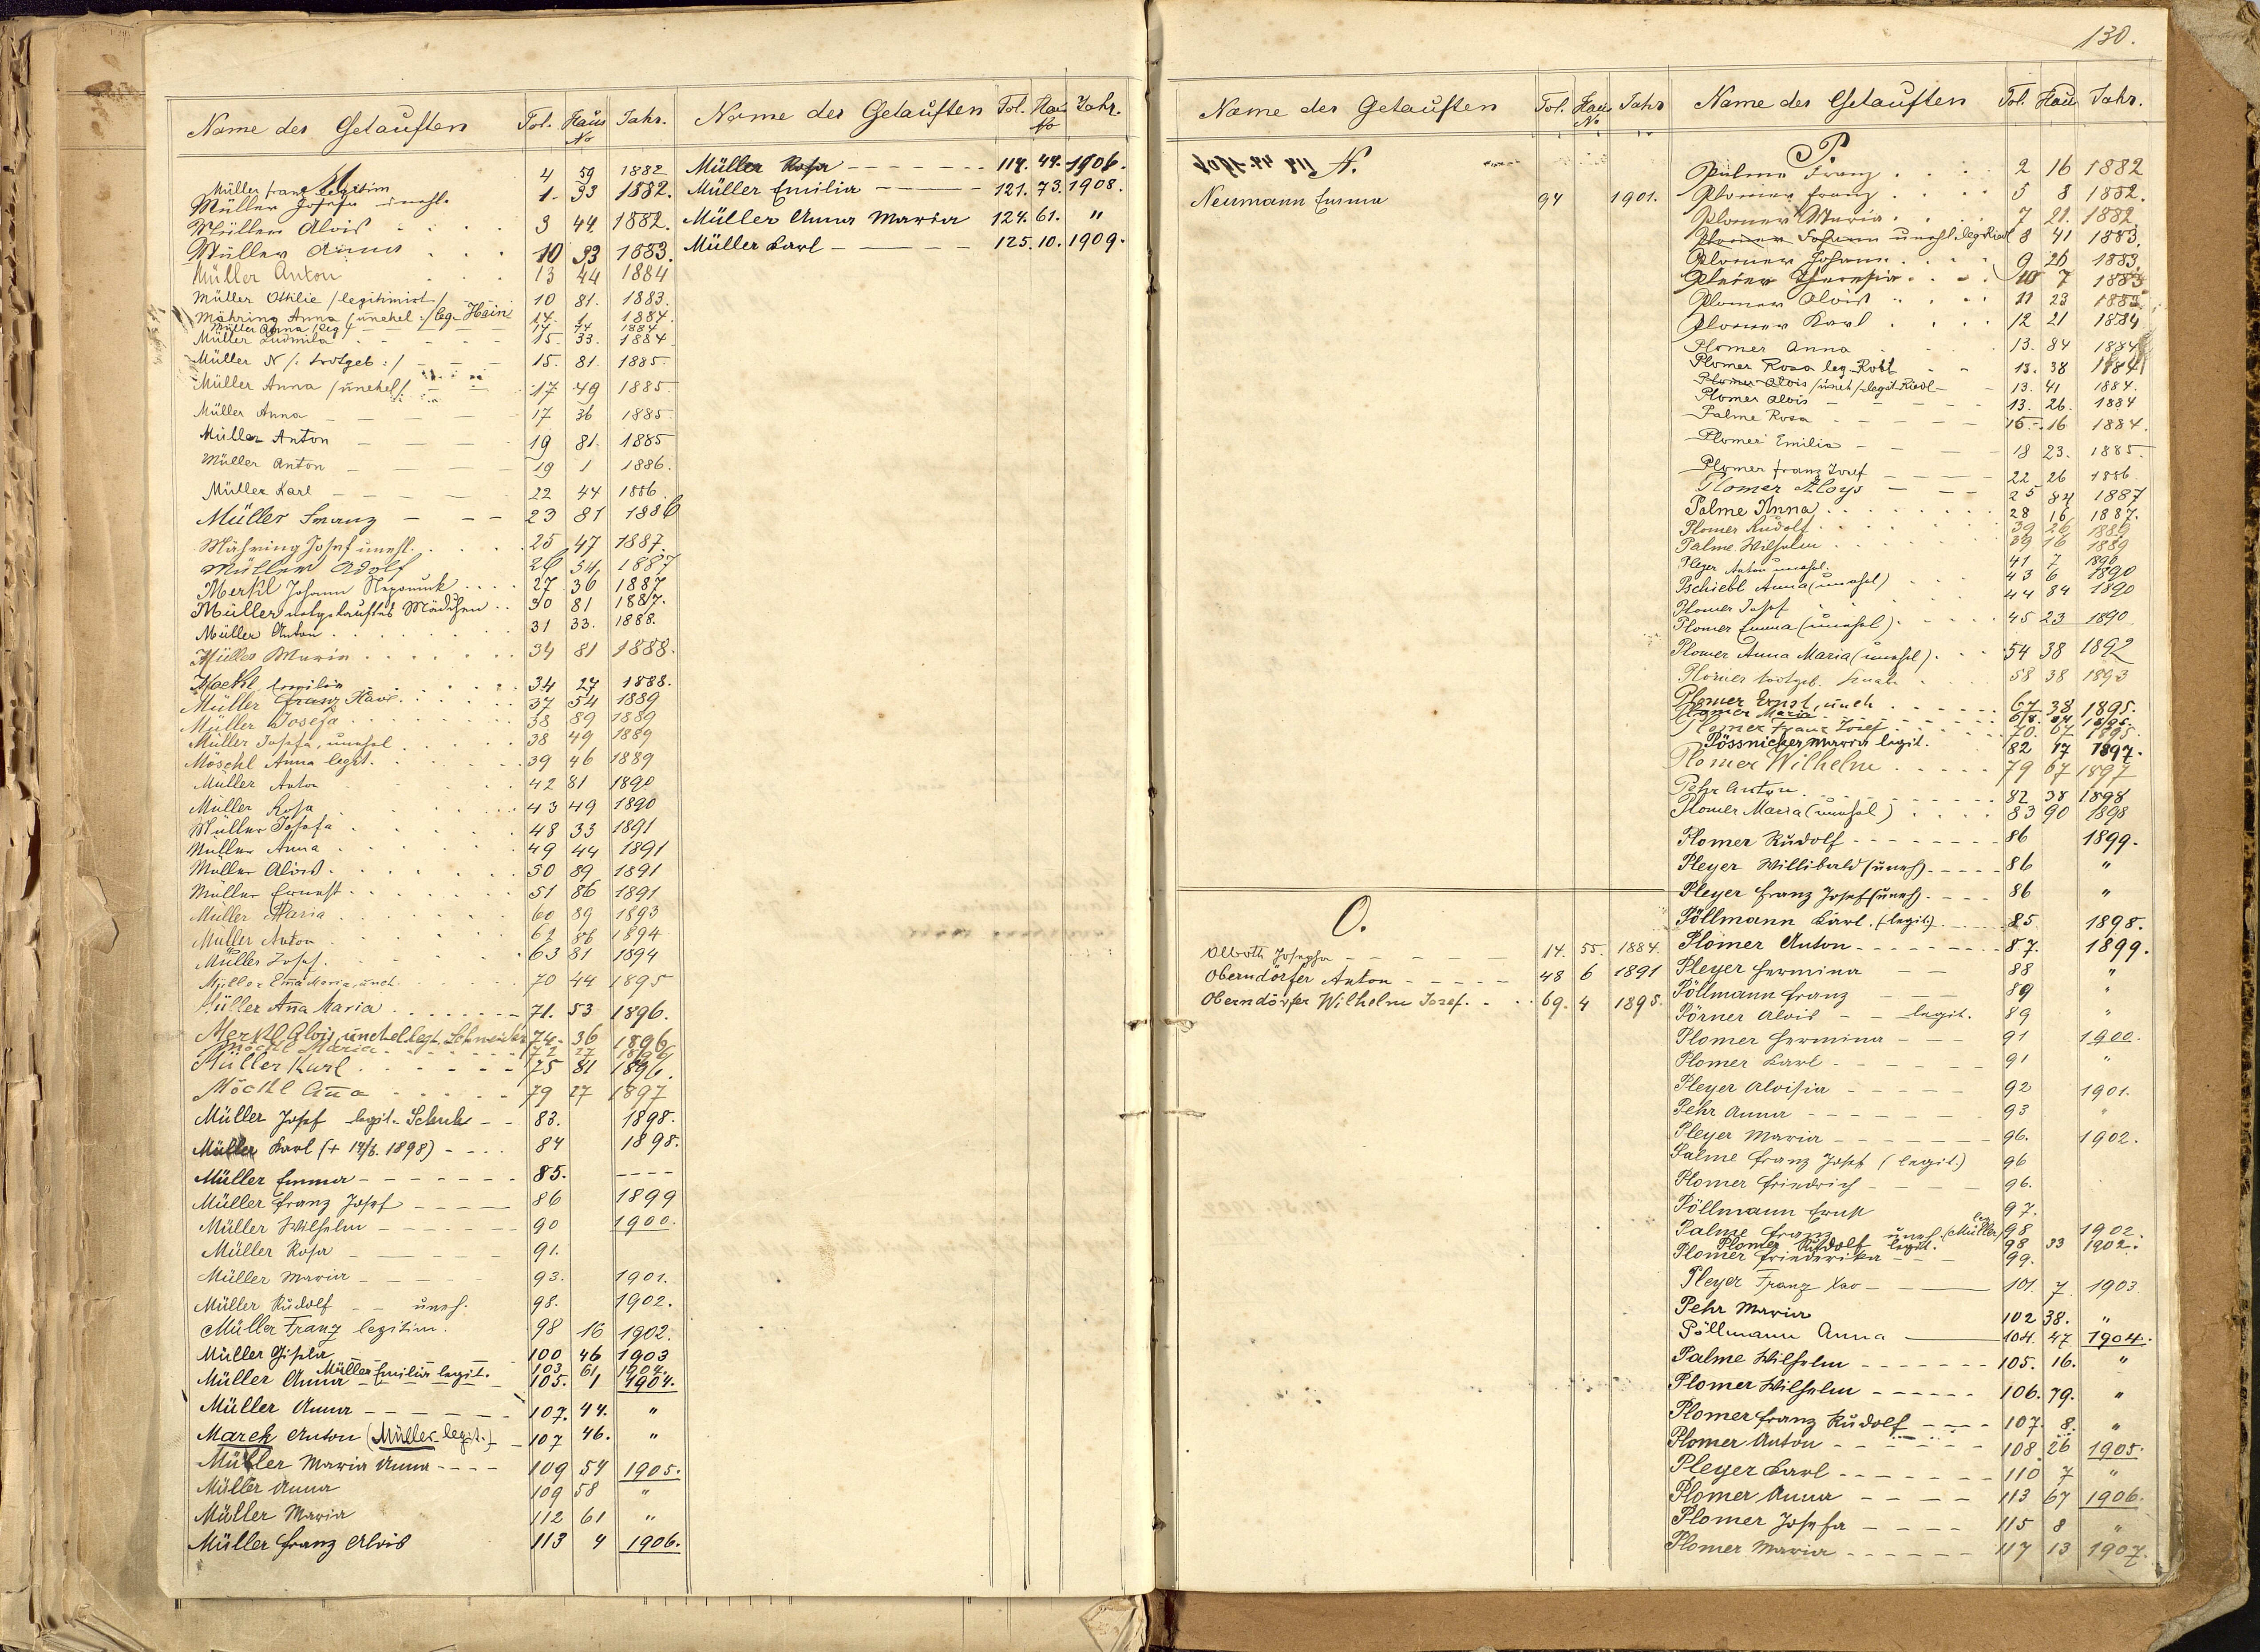 130.
Name des Getauften Fol. Haus No Jahr.
M
Müller Franz legitim 4 59 1882
Müller Josefa unehl. 1. 33 1882.
Müller Alois 3 44. 1882.
Müller Anna 10 33 1883.
Müller Anton 13 44 1884
Müller Ottilie /legitimirt/ 10 81. 1883.
Mähring Anna /unehel:/ leg. Hain 14. 1. 1884.
Müller Anna /leg/ 14 44 1884
Müller Ludmila 15. 33. 1884
Müller N /: todtgeb :/ 15. 81. 1885.
Müller Anna /unehel/ 17 49 1885
Müller Anna 17 36 1885
Müller Anton 19 81. 1885
Müller Anton 19 1 1886.
Müller Karl 22 44 1886.
Müller Franz 23 81 1886
Mähring Josef unehl. 25 47 1887.
Müller Adolf 26 54, 1887
Merkl Johann Nepomuk 27 36 1887
Müller notgetauftes Mädchen 30 81 1887.
Müller Anton 31 33. 1888.
Müller Maria 34 81 1888.
Möckl Emilie 34 27 1888.
Müller Franz Xaver 37 54 1889
Müller Josefa 38 89 1889
Müller Josefa, unehel 38 49 1889
Möschl Anna legit. 39 46 1889
Müller Anton 42 81 1890
Müller Rosa 43 49 1890
Müller Josefa 48 33 1891
Müller Anna 49 44 1891
Müller Alois 50 89 1891
Müller Ernest 51 86 1891
Müller Maria 60 89 1893
Müller Anton 62 86 1894
Müller Josef. 63 81 1894
Müller Ema Maria, uneh. 70 44 1895
Müller Ana Maria 71. 53 1896.
Merkl Alois, unehel. legt. Schneider 74. 36 1896
Möckl Maria 72 27 1896
Müller Karl 75 81 1896.
Möckl Ana 79 27 1897
Müller Josef legit. Schuh 83. 1898.
Müller Karl (+ 14/6. 1898) 84 1898.
Müller Emma 85. ----
Müller Franz Josef 86 1899
Müller Wilhelm 90 1900.
Müller Rosa 91.
Müller Maria 93. 1901.
Müller Rudolf uneh. 98. 1902.
Müller Franz legitim. 98 16 1902.
Müller Gisela 100 46 1903
Müller Emilia legit. 103 61 1904.
Müller Anna 105. 1 1904.
Müller Anna 107. 44. "
Marek Anton (Müller legit.) 107 46. "
Müller Maria Anna 109 54 1905.
Müller Anna 109 58 "
Müller Maria 112 61 "
Müller Franz Alois 113 4 1906.
Name des Getauften Fol. Haus No Jahr.
Müller Rosa 114. 44. 1906.
Müller Emilia 121. 73. 1908.
Müller Anna Maria 124. 61. "
Müller Karl 125. 10. 1909.
Name des Getauften Fol. Haus No Jahr
N.
Neumann Emma 94 1901.
O.
Olboth Josepha 14. 55. 1884.
Oberndörfer Anton 48 6 1891
Oberndörfer Wilhelm Josef. 69. 4 1895.
Name des Getauften Fol. Haus Jahr.
P.
Palme Franz 2 16 1882
Plomer Franz 5 8 1882.
Plomer Maria 7 21. 1882
Plomer Johann unehl. leg. Riedl 8 41 1883.
Plomer Johann 9 26 1883.
Pleier Theresia 10 7 1883
Plomer Alois 11 23 1883
Plomer Karl 12 21 1884
Plomer Anna 13. 84 1884
Plomer Rosa leg. Robl 13. 38 1884
Plomer Alois /uneh/ legit. Riedl 13. 41 1884.
Plomer Alois 13. 26. 1884
Palme Rosa 15. 16 1884.
Plomer Emilia 18 23. 1885.
Plomer Franz Josef 22 26 1886
Plomer Aloys 25 84 1887
Palme Anna 28 16 1887.
Plomer Rudolf 39 26 1889
Palme Wilhelm 39 16 1889
Pleyer Anton unehel. 41 7 1890
Pschiebl Anna (unehel) 43 6 1890
Plomer Josef 44 84 1890
Plomer Emma (unehel) 45 23 1890
Plomer Anna Maria (unehel) 54 38 1892
Plomer todtgeb. Knabe 58 38 1893
Plomer Ernst, uneh 67 38 1895.
Plomer Maria 68. 84 1895.
Plomer Franz Josef 70. 67 1895.
Pössnicker Maria legit. 82 17 1897.
Plomer Wilhelm 79 67 1897
Pehr Anton 82 38 1898
Plomer Maria (unehel) 83 90 1898
Plomer Rudolf 86 1899.
Pleyer Willibald (uneh) 86 "
Pleyer Franz Josef (uneh) 86 "
Pöllmann Karl. (legit.) 85 1898.
Plomer Anton 87. 1899.
Pleyer Hermina 88 "
Pöllmann Franz 89 "
Pörner Alois legit. 89 "
Plomer Hermina 91 1900.
Plomer Karl 91 "
Pleyer Aloisia 92 1901.
Pehr Anna 93 "
Pleyer Maria 96. 1902.
Palme Franz Josef (legit.) 96
Plomer Friedrich 96.
Pöllmann Ernst 97.
Palme Franz uneh. leg. (Müller) 98 1902.
Plomer Rudolf legit. 98 33 1902.
Plomer Friederika 99.
Pleyer Franz Xav 101. 7 1903
Pehr Maria 102 38. "
Pöllmann Anna 104. 47 1904.
Palme Wilhelm 105. 16. "
Plomer Wilhelm 106. 79. "
Plomer Franz Rudolf 107. 8. "
Plomer Anton 108. 26 1905.
Pleyer Karl 110 7 "
Plomer Anna 113 67 1906.
Plomer Josefa 115 8 "
Plomer Maria 117 13 1907.